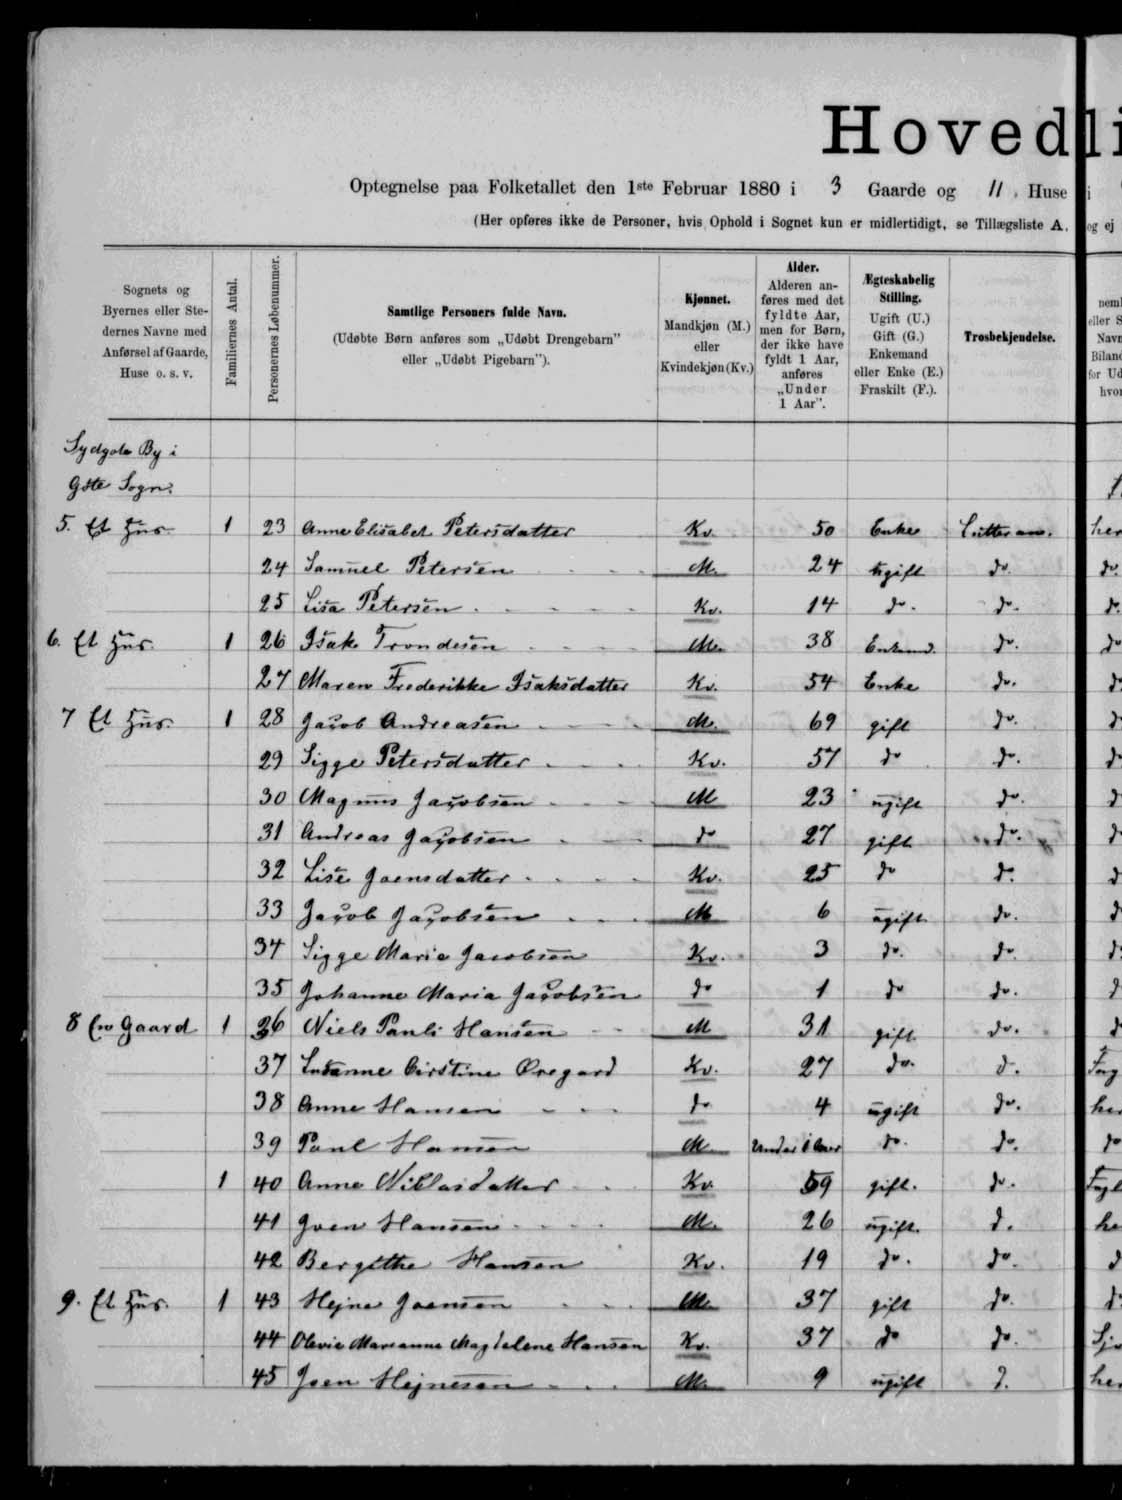 Hovedli
Optegnelse paa Folketallet den 1ste Februar 1880 i 3 Gaarde og 11 Huse i
(Her opføres ikke de Personer, hvis Ophold i Sognet kun er midlertidigt, se Tillægsliste A. og ej
Sognets og Byernes eller Stedernes Navne med Anførsel af Gaarde, Huse o. s. v.
Familiernes Antal.
Personernes Løbenummer.
Samtlige Personers fulde Navn.
(Udøbte Børn anføres som „Udøbt Drengebarn"
eller „Udøbt Pigebarn").
Kjønnet.
Mandkjøn (M.)
eller
Kvindekjøn (Kv.)
Alder.
Alderen an-
føres med det
fyldte Aar,
men for Børn,
der ikke have
fyldt 1 Aar,
anføres
„Under
1 Aar".
Ægteskabelig
Stilling.
Ugift (U.)
Gift (G.)
Enkemand
eller Enke (E.)
Fraskilt (F.).
Trosbekjendelse.
By i
Gøte Sogn.
5. Et Hus. 1 23 Anne Elisabet Petersdatter Kv. 50 Enke Lutteran. her
24 Samuel Petersen M. 24 ugift do. do.
25 Lisa Petersen Kv. 14 do. do. d.
6. Et Hus. 1 26 Isak Trondesen M. 38 Enkemd. do. do
27 Maren Frederikke Isaksdatter Kv. 54 Enke do. d
7 Et Hus. 1 28 Jacob Andreasen M. 69 gift do. d
29 Sigge Petersdatter Kv. 57 do do. d
30 Magnus Jacobsen M 23 ugift do. d
31 Andreas Jacobsen do 27 gift do. d
32 Lise Joensdatter Kv. 25 do d. d
33 Jacob Jacobsen M 6 ugift do. d
34 Sigge Maria Jacobsen Kv. 3 do. do d
35 Johanne Maria Jacobsen do 1 do do. d
8 En Gaard 1 36 Niels Pauli Hansen M 31 gift do. d
37 Susanne Cirstine Øregard Kv. 27 do. d.
38 Anne Hansen do 4 ugift do. her
39 Paul Hansen M Under 1 Aar do. do. do
1 40 Anne Niklasdatter Kv. 59 gift. do.
41 Joen Hansen M. 26 ugift. d. he
42 Bergithe Hansen Kv. 19 do. do. d
9. Et Hus. 1 43 Hejne Joensen M. 37 gift do. d
44 Olevie Marianne Magdalene Hansen Kv. 37 do do.
45 Joen Hejnesen M. 9 ugift d. her